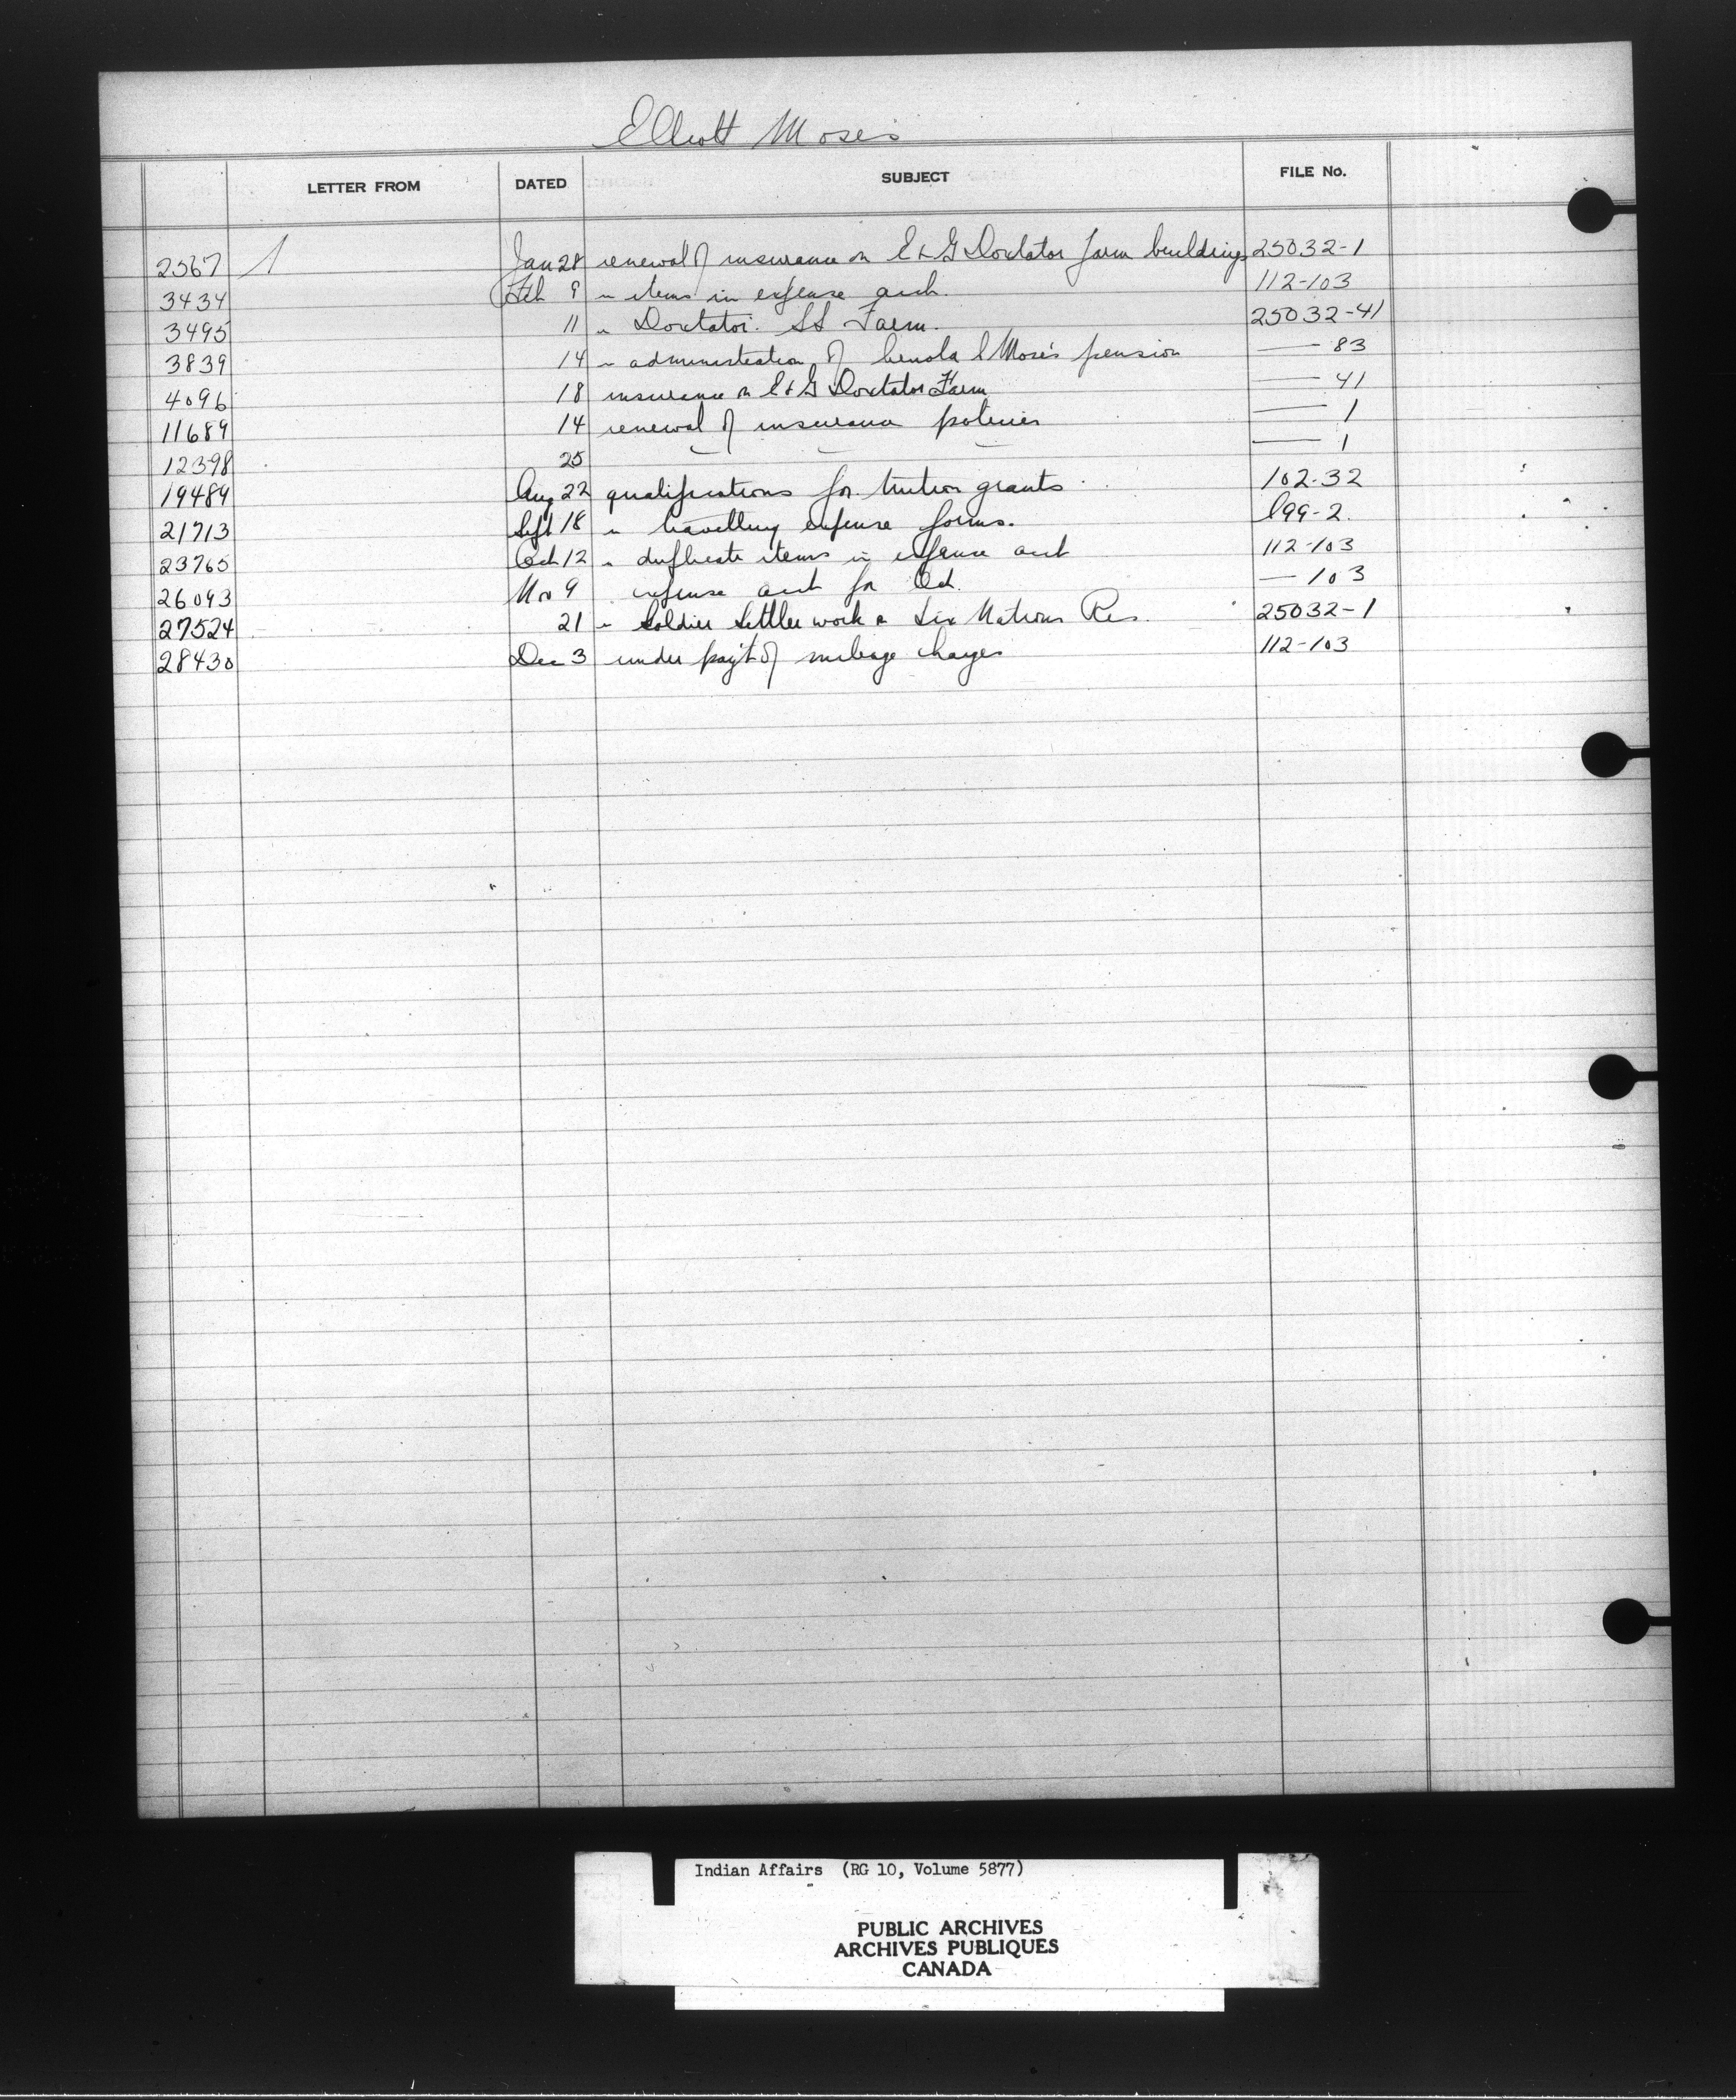 Elliott Moses
LETTER FROM DATED SUBJECT FILE No.
2567 Jan 28 renewal of insurance on E & G Doxtator farm buildings 25032-1
3434 Feb 9 " items in expense acct. 112-103
3495 11 " Doxtator. SS Farm. 25032-41
3839 14 " administration of Moses pension — 83
4096 18 insurance on E & G Doxtator Farm — 41
11689 14 renewal of insurance policies — 1
12398 25 — — — — 1
19489 Aug 22 qualifications for tuition grants 102-32
21713 Sept 18 " travelling expense forms. 199-2.
23765 Oct 12 " duplicate items in expense acct 112-103
26093 Nov 9 expense acct for Oct. — 103
27524 21 " Soldier Settler work on Six Nations Res. 25032-1
28430 Dec 3 under pay't of mileage charges 112-103
Indian Affairs (RG 10, Volume 5877)
PUBLIC ARCHIVES
ARCHIVES PUBLIQUES
CANADA